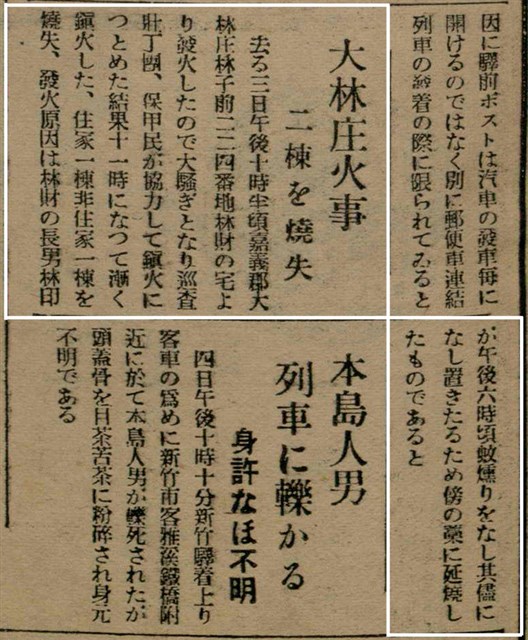 因に驛前ポストは汽車の發車每に
開けるのではなく別に郵便車連結
列車の發着の際に限られてゐると
大林庄火事
二棟を燒失
去る三日午後十時半頃嘉義郡大
林庄林子前二二四番地林財の宅よ
り發火したので大騷ぎとなり巡査
壯丁團、保甲民が協力して鎭火に
つとめた結果十一時になつて漸く
鎭火した、住家一棟非住家一棟を
燒失、發火原因は林財の長男林印
が午後六時頃蚊燻りをなし其儘に
なし置きたるため傍の藁に延燒し
たものであると
本島人男
列車に轢かる
身許なほ不明
四日午後十時十分新竹驛着上り
客車の爲めに新竹市客雅溪鐵橋附
近に於て本島人男が轢死されたが
頭蓋骨を目茶苦茶に粉碎され身元
不明である